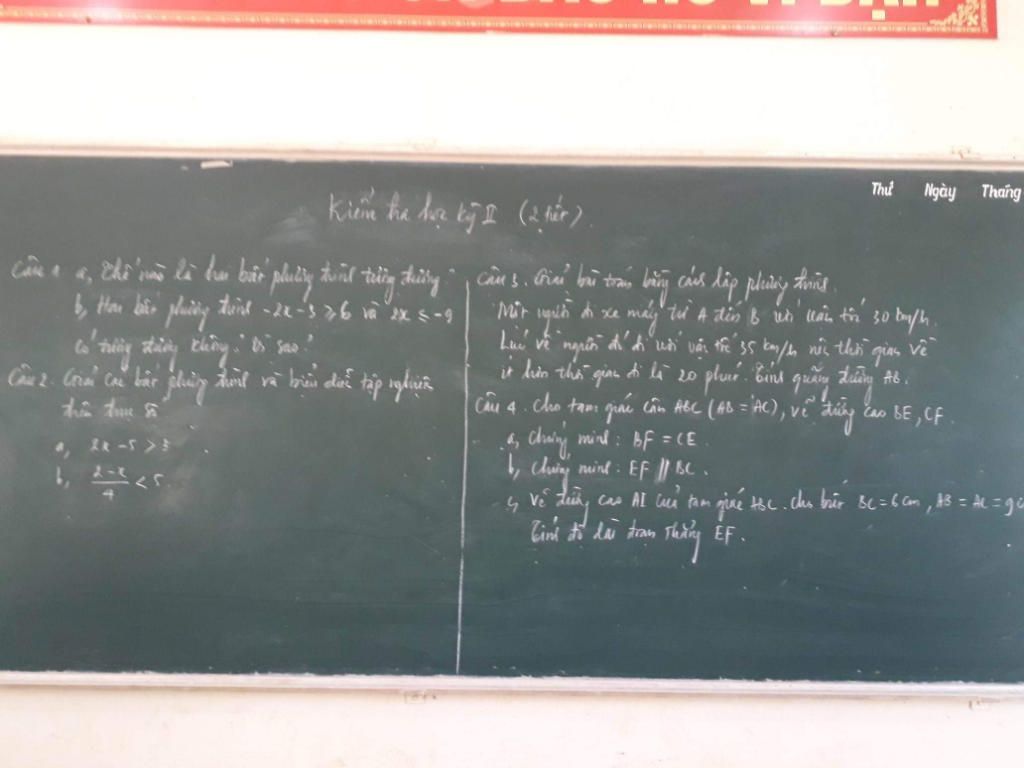 Thứ Ngày Tháng
Kiểm tra học kỳ II (2 tiết)
Câu 1 a, Thế nào là hai bất phương trình tương đương.
b, Hai bất phương trình -2x - 3 ≥ 6 và 2x ≤ -9
Có tương đương không? Vì sao?
Câu 2. Giải các bất phương trình và biểu diễn tập nghiệm
trên trục số
a, 2x - 5 > 3
b, (2-x)/4 < 5
Câu 3. Giải bài toán bằng cách lập phương trình.
Một người đi xe máy từ A đến B với vận tốc 30 km/h.
Lúc về người đó đi với vận tốc 35 km/h nên thời gian về
ít hơn thời gian đi là 20 phút. Tính quãng đường AB.
Câu 4. Cho tam giác cân ABC (AB = AC), vẽ đường cao BE, CF.
a, Chứng minh: BF = CE
b, Chứng minh: EF // BC.
c, Vẽ đường cao AI của tam giác ABC. cho biết BC = 6 cm, AB = AC = 9 c
Tính độ dài đoạn thẳng EF.